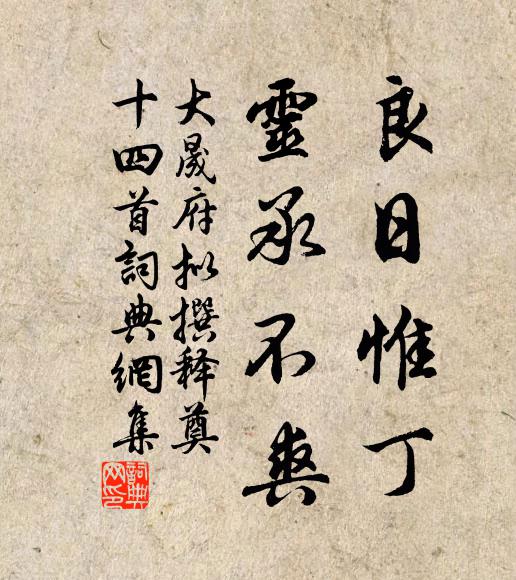 良日惟丁
靈承不爽
大晟府拟撰释奠
十四首詞典網集
詞典
网印